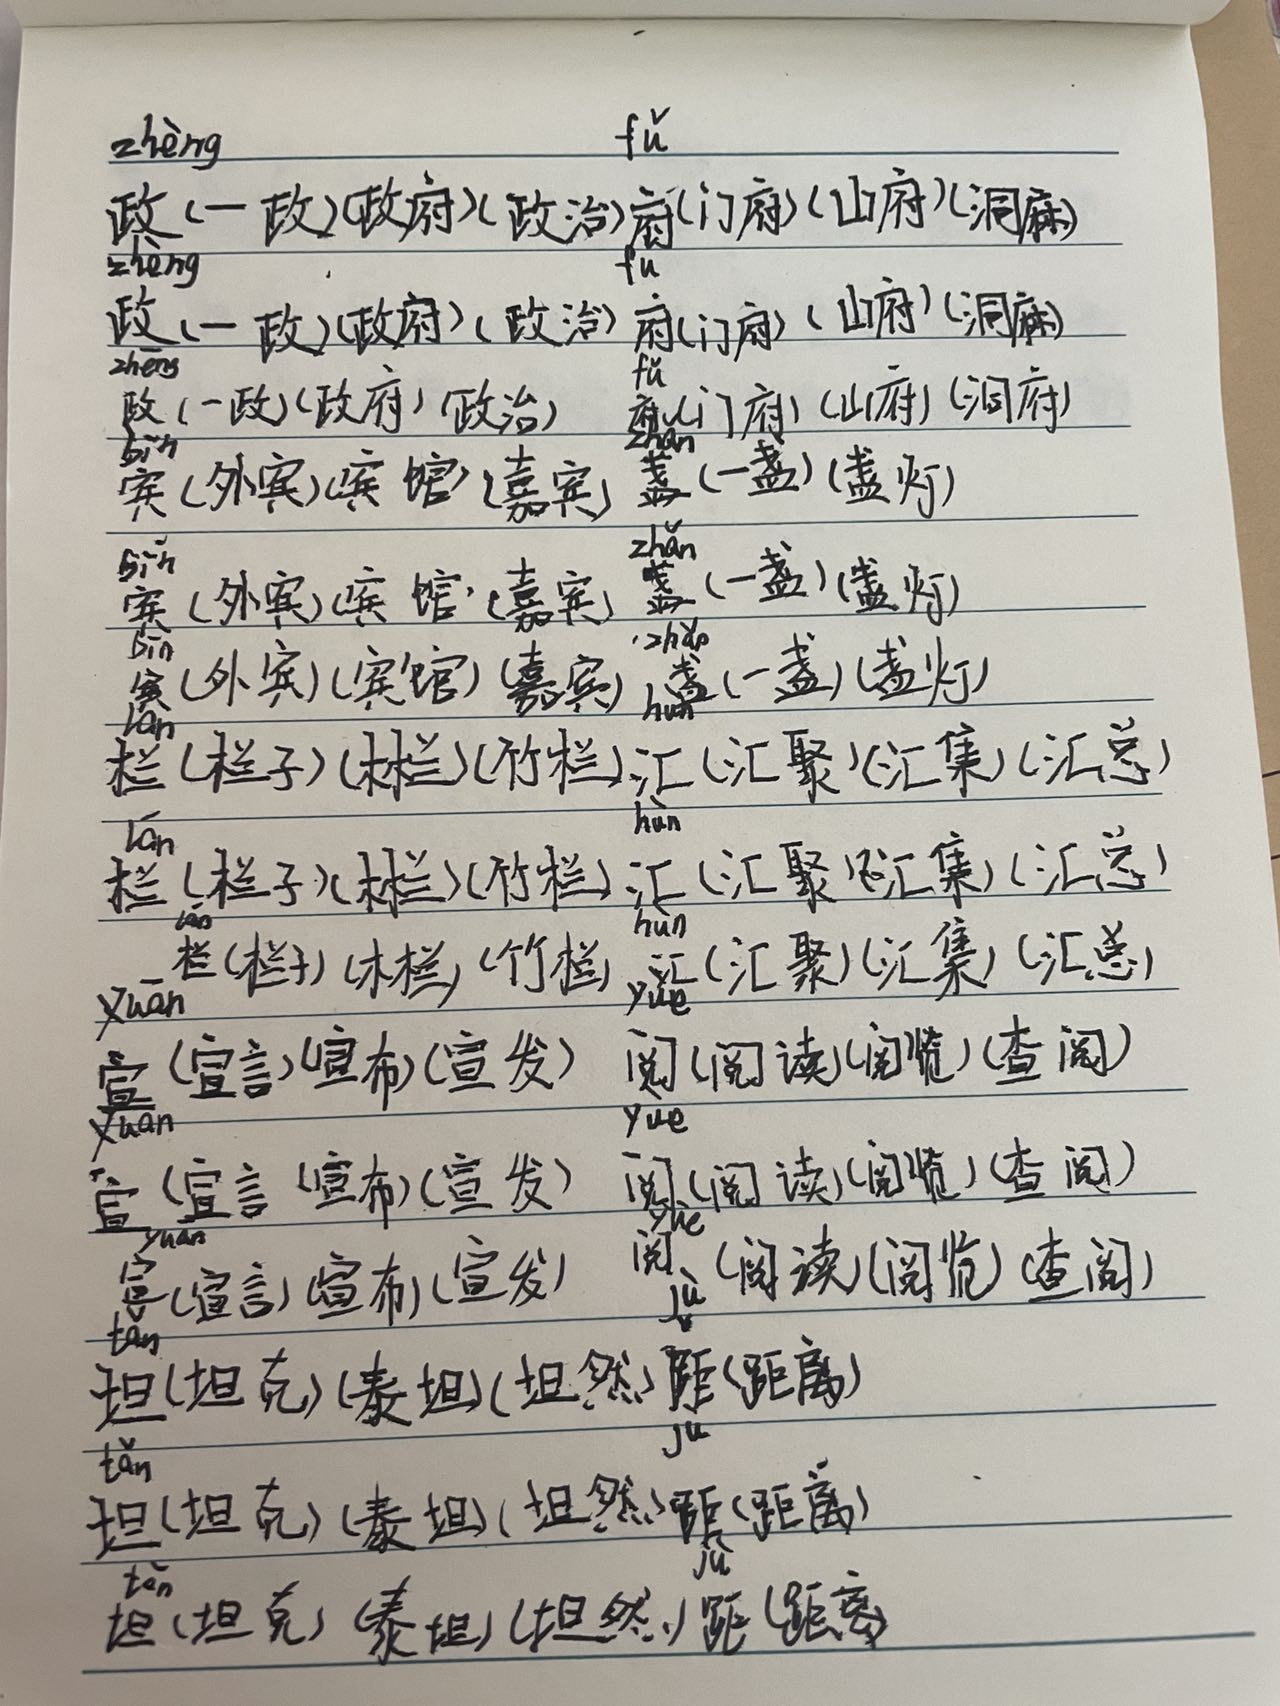 zhèng fǔ
政(一政)(政府)(政治)府(门府)(山府)(洞麻)
zhèng fu
政(一政)(政府)(政治)府(门府)(山府)(洞麻)
zhēng fǔ
政(一政)(政府)(政治)府(门府)(山府)(洞府)
bīn zhǎn
宾(外宾)(宾馆)(嘉宾)盏(一盏)(盏灯)
bīn zhǎn
宾(外宾)(宾馆)(嘉宾)盏(一盏)(盏灯)
bīn zhǎn
宾(外宾)(宾馆)(嘉宾)盏(一盏)(盏灯)
lán hùn
栏(栏子)(木栏)(竹栏)汇(汇聚)(汇集)(汇总)
lán hùn
栏(栏子)(木栏)(竹栏)汇(汇聚)(汇集)(汇总)
lán hùn
栏(栏子)(木栏)(竹栏)汇(汇聚)(汇集)(汇总)
yuān yuè
宣(宣言)(宣布)(宣发)阅(阅读)(阅览)(查阅)
xuan yue
宣(宣言(宣布)(宣发)阅(阅读)(阅览)(查阅)
yuan yuè
宣(宣言)(宣布)(宣发)阅(阅读)(阅览)(查阅)
tǎn jù
坦(坦克)(泰坦)(坦然)距(距离)
tǎn jù
坦(坦克)(泰坦)(坦然)距(距离)
tǎn jù
坦(坦克)(泰坦)(坦然)距(距离)